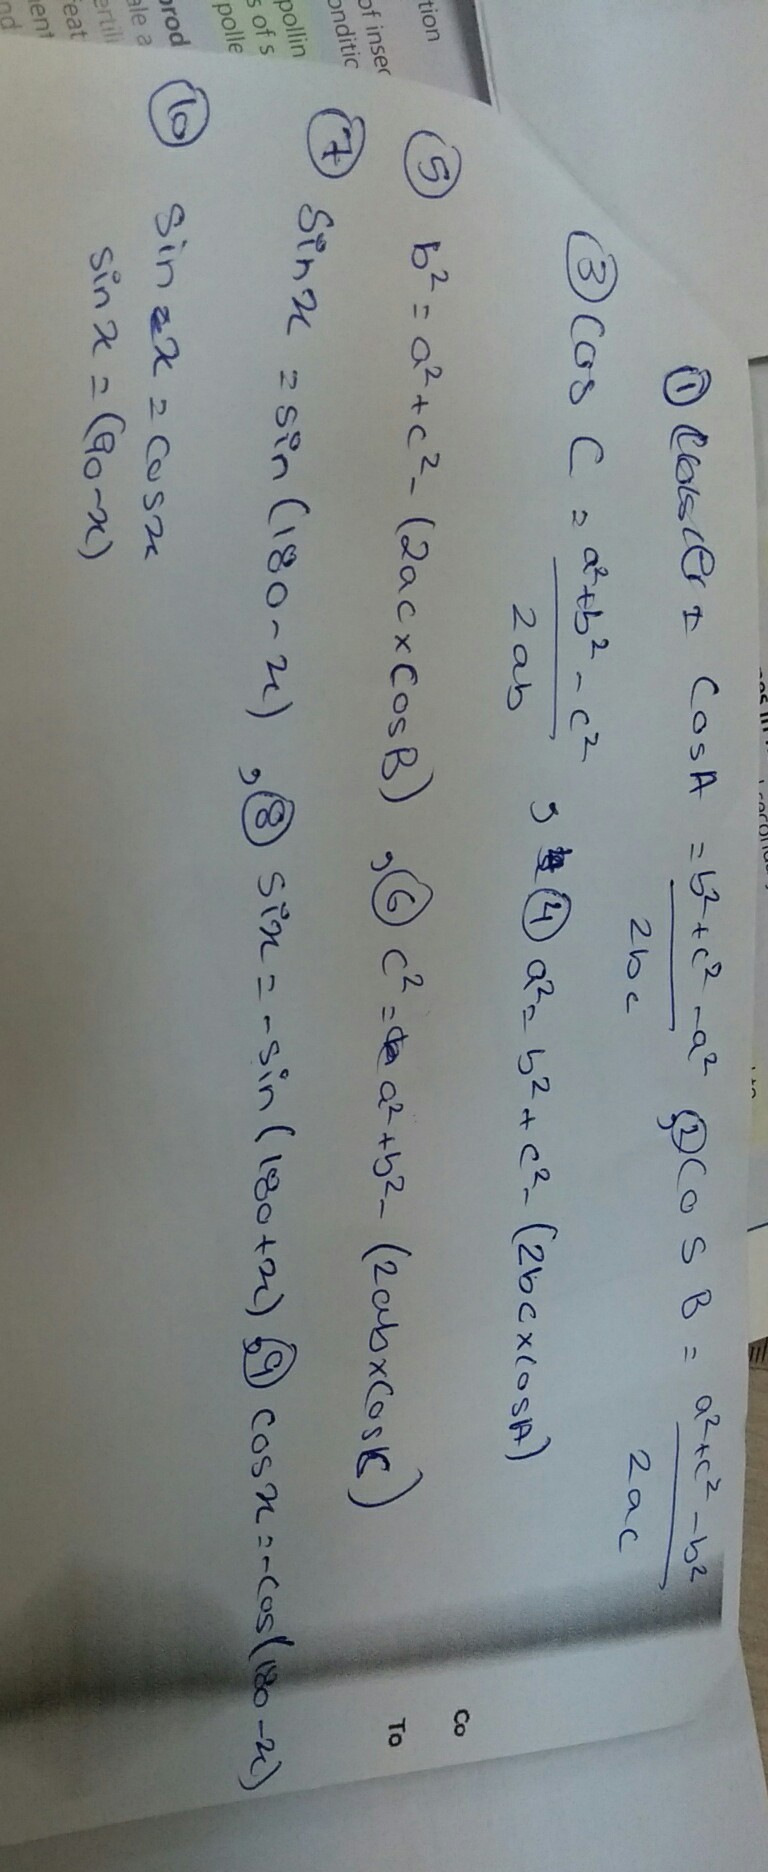 ① CosA = b²+c²-a² / 2bc ,② Cos B = a²+c²-b² / 2ac
③ Cos C = a²+b²-c² / 2ab , ④ a²= b²+c²-(2bc×cosA)
⑤ b²= a²+c²-(2ac×CosB) ,⑥ c²= a²+b²-(2ab×CosC)
⑦ Sinx = sin(180-x) ,⑧ Six = -sin(180+x) ,⑨ Cosx = -Cos(180-x)
⑩ Sin x = Cosx
Sinx = (90-x)
Co
To
tion
of insec
onditic
pollin
s of s
polle
prod
ale a
ertili
eat
ent
nd